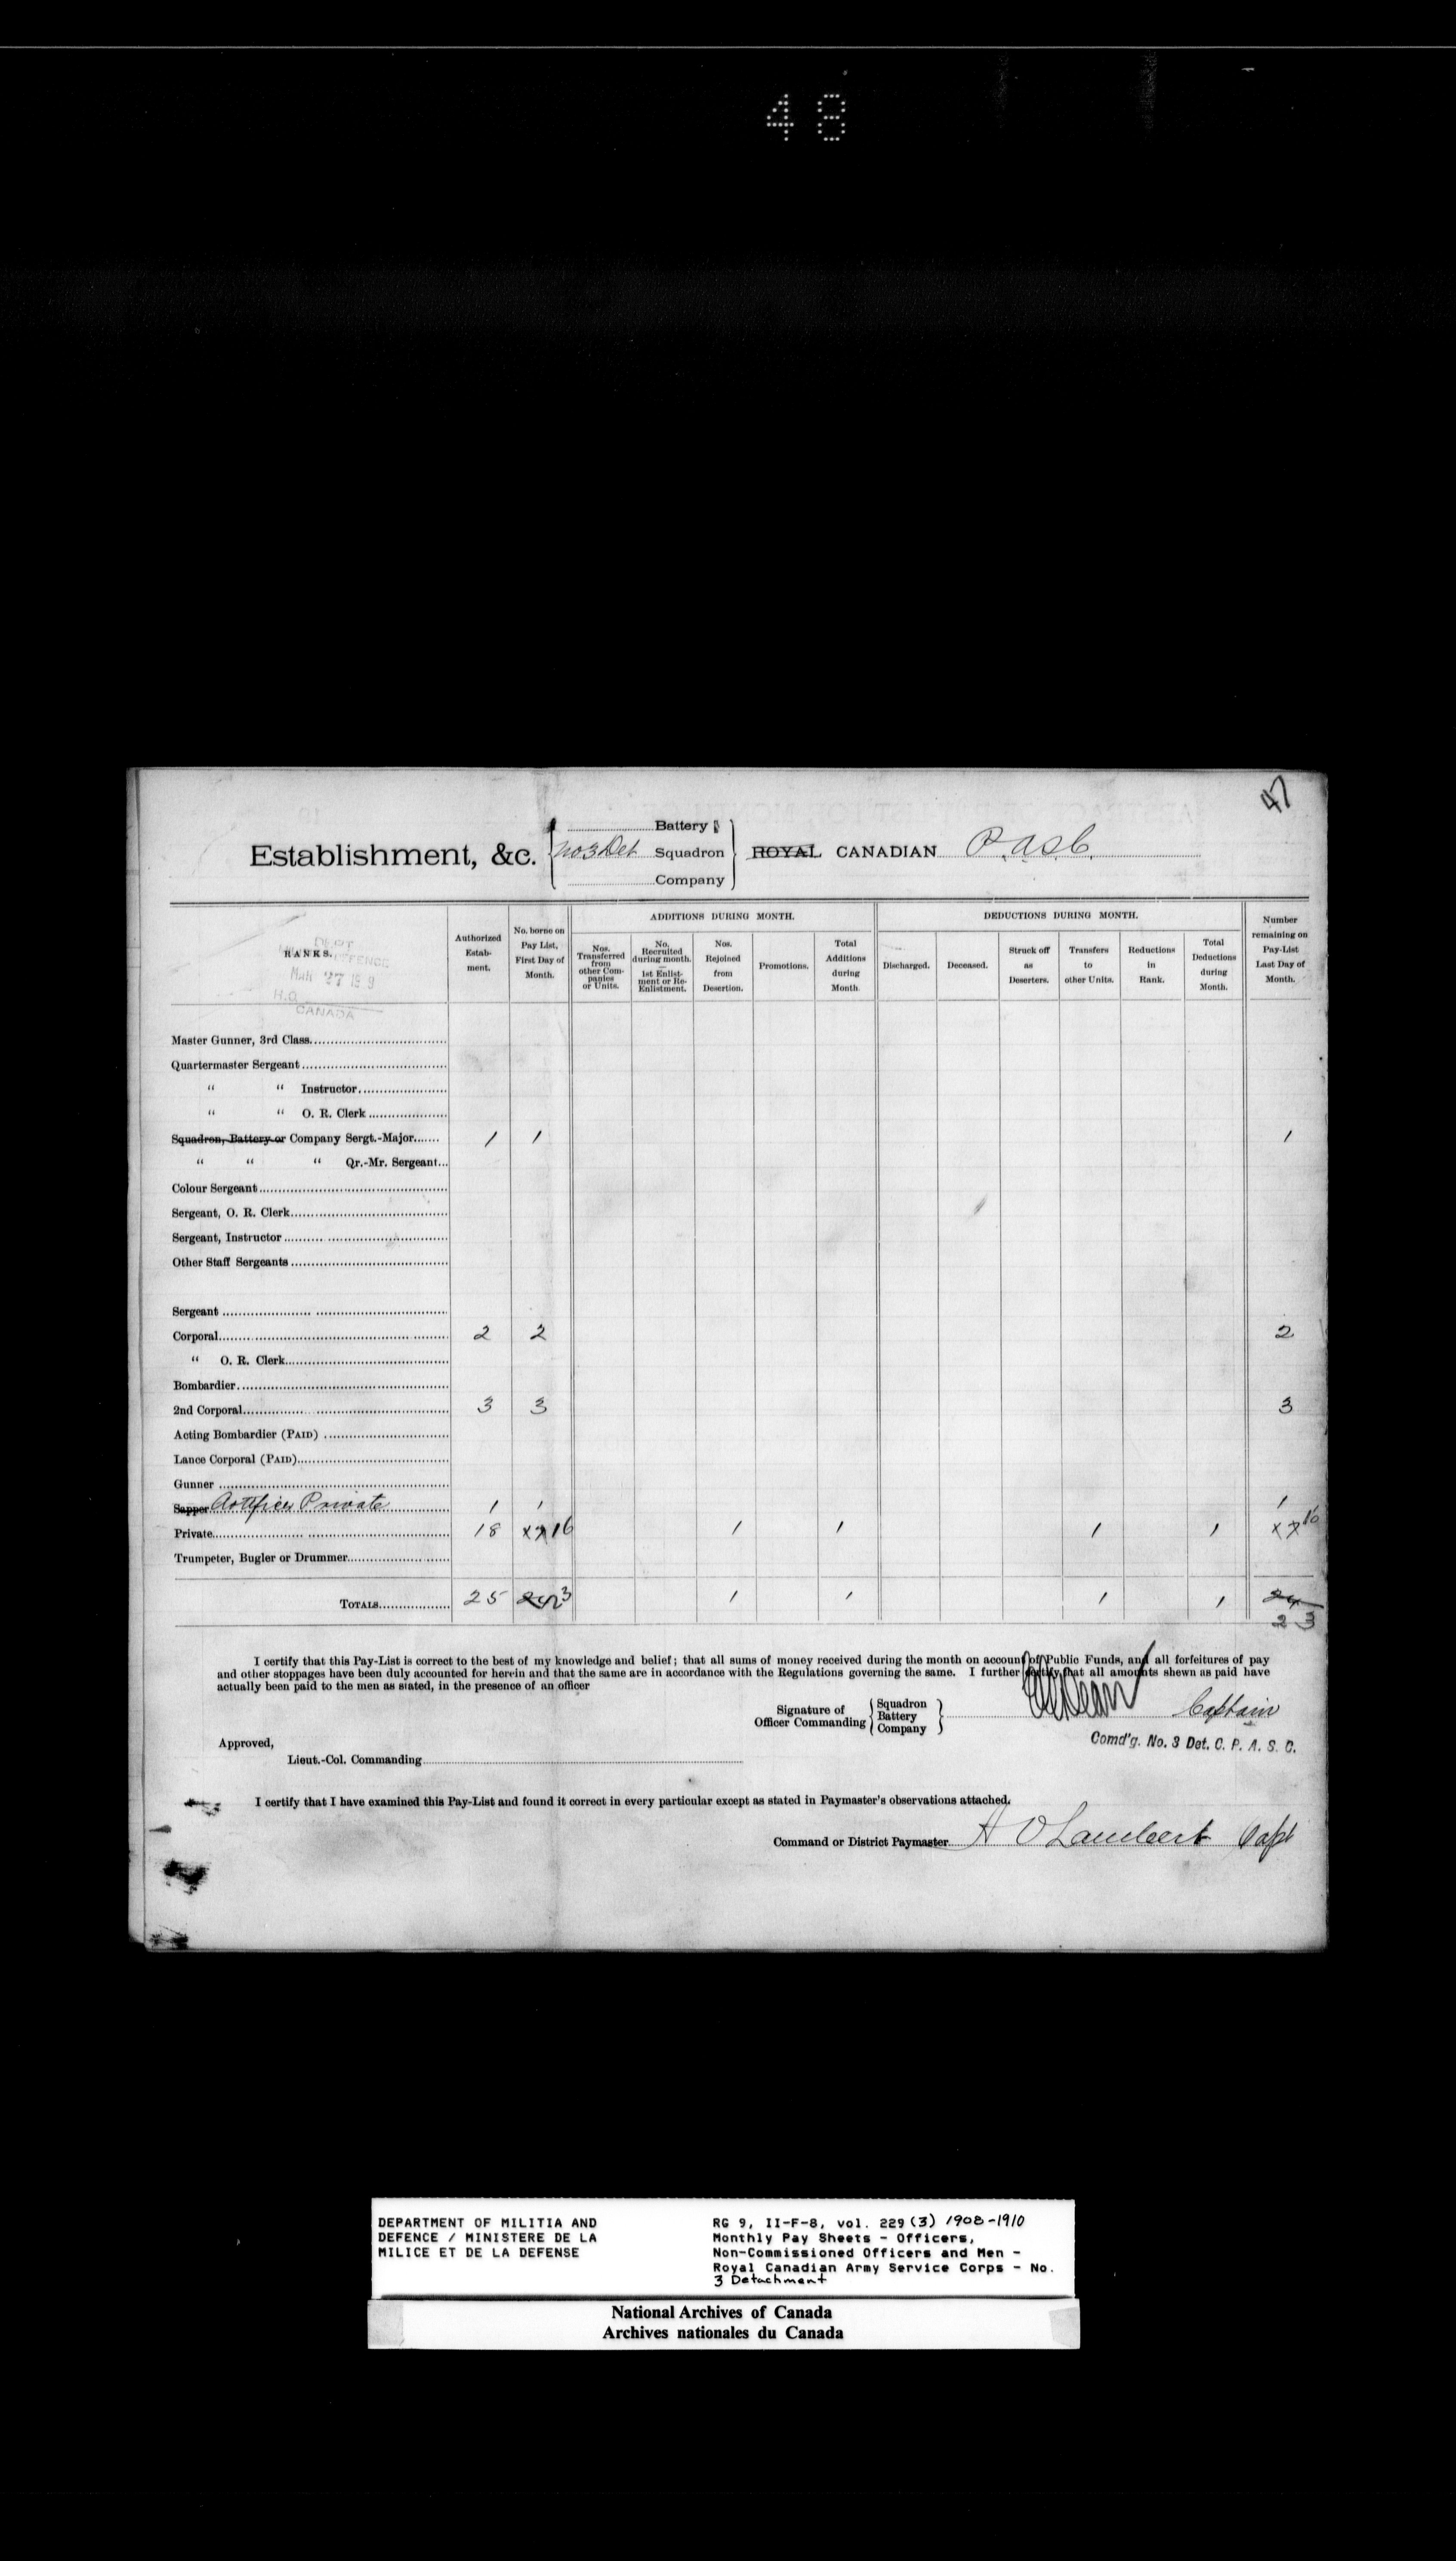 48
47
Establishment, &c.
Battery
No 3 Det Squadron
Company
ROYAL CANADIAN P. A. S. C.
RANKS.
Authorized Estab- ment.
No. borne on Pay List, First Day of Month.
ADDITIONS DURING MONTH.
Nos. Transferred from other Com- panies or Units.
No. Recruited during month. 1st Enlist- ment or Re- Enlistment.
Nos. Rejoined from Desertion.
Promotions.
Total Additions during Month
DEDUCTIONS DURING MONTH.
Discharged.
Deceased.
Struck off as Deserters.
Transfers to other Units.
Reductions in Rank.
Total Deductions during Month.
Number remaining on Pay-List Last Day of Month.
DEPT
DEFENCE
MAR 27
H.Q.
CANADA
Master Gunner, 3rd Class
Quartermaster Sergeant
" " Instructor
" " O. R. Clerk
Squadron, Battery or Company Sergt.-Major 1 1 1
" " " Qr.-Mr. Sergeant
Colour Sergeant
Sergeant, O. R. Clerk
Sergeant, Instructor
Other Staff Sergeants
Sergeant
Corporal 2 2 2
" O. R. Clerk
Bombardier
2nd Corporal 3 3 3
Acting Bombardier (PAID)
Lance Corporal (PAID)
Gunner
Sapper Artificer Private 1 1 1
Private 18 16 1 1 1 1 16
Trumpeter, Bugler or Drummer
TOTALS 25 24 23 1 1 1 1 24 23
I certify that this Pay-List is correct to the best of my knowledge and belief; that all sums of money received during the month on account of Public Funds, and all forfeitures of pay
and other stoppages have been duly accounted for herein and that the same are in accordance with the Regulations governing the same. I further certify that all amounts shewn as paid have
actually been paid to the men as stated, in the presence of an officer
Signature of Officer Commanding
Squadron
Battery
Company
Captain
Comd'g. No. 3 Det. C. P. A. S. C.
Approved,
Lieut.-Col. Commanding
I certify that I have examined this Pay-List and found it correct in every particular except as stated in Paymaster's observations attached.
Command or District Paymaster A O Lambert Capt
DEPARTMENT OF MILITIA AND
DEFENCE / MINISTERE DE LA
MILICE ET DE LA DEFENSE
RG 9, II-F-8, vol. 229 (3) 1908-1910
Monthly Pay Sheets - Officers,
Non-Commissioned Officers and Men -
Royal Canadian Army Service Corps - No.
3 Detachment
National Archives of Canada
Archives nationales du Canada